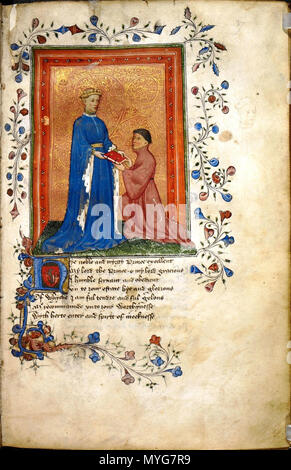 Hye noble and myghty Prince excellent
My lord the Prince o my lord gracious
I humble servant and obedient
Un to your estate hye and glorious
Of whiche I am ful tendre and ful gelous
Me recomande unto your worthynesse
With herte enter and spirit of meeknesse
alamy
MYG7R9